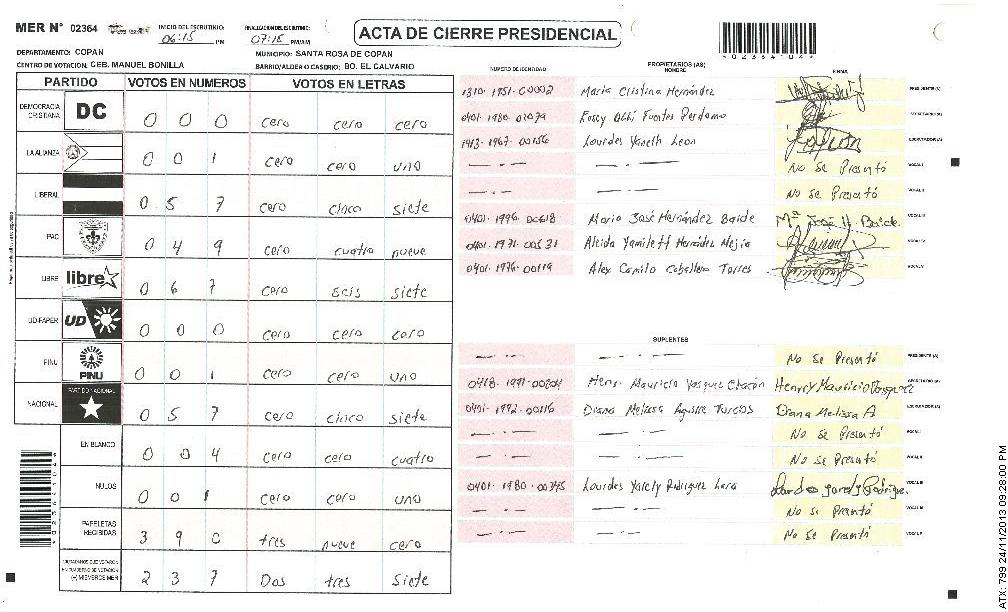 MER N° 02364 INICIO DEL ESCRUTINIO: 06:15 PM FINALIZACION DEL ESCRUTINIO: 07:15 PM/AM ACTA DE CIERRE PRESIDENCIAL
DEPARTAMENTO: COPAN MUNICIPIO: SANTA ROSA DE COPAN
CENTRO DE VOTACION: CEB. MANUEL BONILLA BARRIO/ALDEA O CASERIO: BO. EL CALVARIO
PARTIDO VOTOS EN NUMEROS VOTOS EN LETRAS
DEMOCRACIA CRISTIANA DC 0 0 0 cero cero cero
LA ALIANZA 0 0 1 cero cero uno
LIBERAL 0 5 7 cero cinco siete
PAC 0 4 9 cero cuatro nueve
LIBRE libre 0 6 7 cero seis siete
UD-FAPER UD 0 0 0 cero cero cero
PINU PINU 0 0 1 cero cero uno
NACIONAL PARTIDO NACIONAL 0 5 7 cero cinco siete
EN BLANCO 0 0 4 cero cero cuatro
NULOS 0 0 1 cero cero uno
PAPELETAS RECIBIDAS 3 9 0 tres nueve cero
CIUDADANOS QUE VOTARON EN CUADERNO DE VOTACION (+) MIEMBROS MER 2 3 7 Dos tres siete
NUMERO DE IDENTIDAD PROPIETARIOS (AS) NOMBRE FIRMA
Maria Cristina Hernández PRESIDENTE (A)
0401-1980-01079 Fuentes Perdomo SECRETARIO (A)
1413-1967-00156 Lourdes Yaneth Leon ESCRUTADOR (A)
No Se Presentó VOCAL I
No Se Presentó VOCAL II
0401-1996-00618 Maria José Hernández Baide Mª José H. Baide. VOCAL III
0401-1971-00531 Aleida Yamilett Hernández Mejia VOCAL IV
0401-1976-00119 Alex Camilo Caballero Torres VOCAL V
SUPLENTES
No Se Presentó PRESIDENTE (A)
0418-1991-00804 Henri Mauricio Vasquez Chacón Henrry Mauricio Vasquez SECRETARIO (A)
0401-1992-00116 Diana Melissa Aguirre Turcios Diana Melissa A ESCRUTADOR (A)
No Se Presentó VOCAL I
No Se Presentó VOCAL II
0401-1980-00345 Lourdes Yarely Rodriguez Lara VOCAL III
No Se Presentó VOCAL IV
No Se Presentó VOCAL V
ATX: 799 24/11/2013 09:28:00 PM